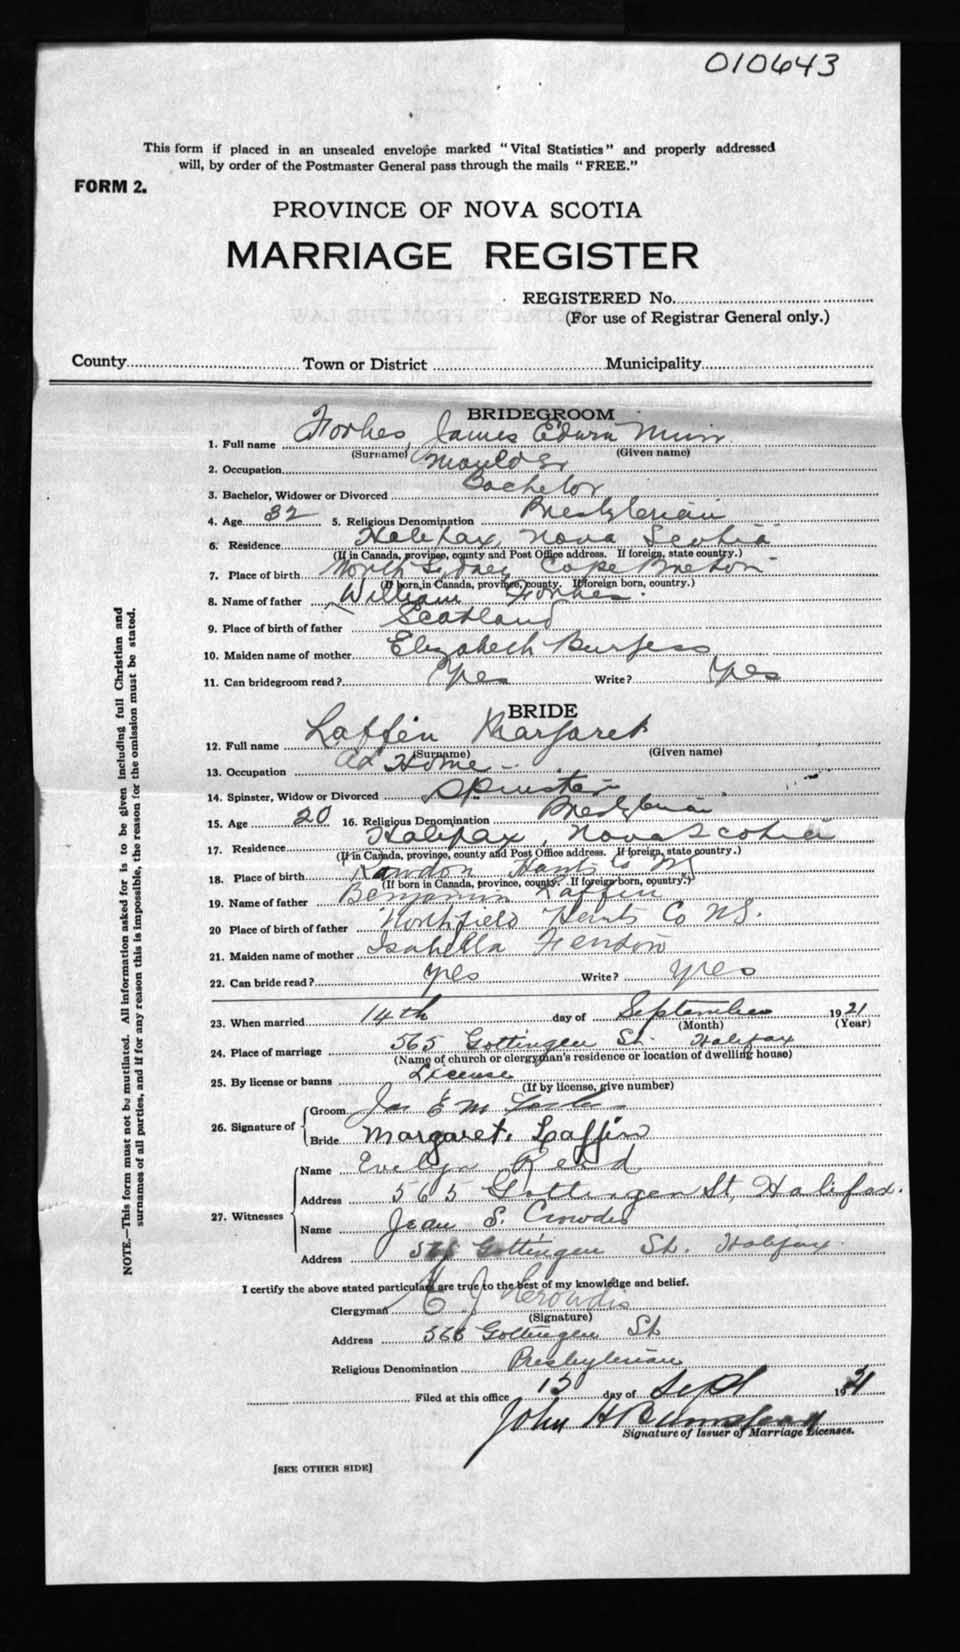 010643
This form if placed in an unsealed envelope marked "Vital Statistics" and properly addressed
will, by order of the Postmaster General pass through the mails "FREE."
FORM 2.
PROVINCE OF NOVA SCOTIA
MARRIAGE REGISTER
REGISTERED No.
(For use of Registrar General only.)
County Town or District Municipality
BRIDEGROOM
1. Full name Forbes, James Edwin Muir
(Surname) (Given name)
2. Occupation Moulder
3. Bachelor, Widower or Divorced Bachelor
4. Age 32 5. Religious Denomination Presbyterian
6. Residence Halifax, Nova Scotia
(If in Canada, province, county and Post Office address. If foreign, state country.)
7. Place of birth North Sydney Cape Breton
(If born in Canada, province, county. If foreign born, country.)
8. Name of father William Forbes.
9. Place of birth of father Scotland
10. Maiden name of mother Elizabeth Burgess
11. Can bridegroom read? Yes Write? Yes
BRIDE
12. Full name Laffin Margaret
(Surname) (Given name)
13. Occupation At Home -
14. Spinster, Widow or Divorced Spinster
15. Age 20 16. Religious Denomination Presbyterian
17. Residence Halifax, Nova Scotia
(If in Canada, province, county and Post Office address. If foreign, state country.)
18. Place of birth Rawdon Hants Co NS
(If born in Canada, province, county. If foreign born, country.)
19. Name of father Benjamin Laffin
20 Place of birth of father Northfield Hants Co NS.
21. Maiden name of mother Isabella Fenton
22. Can bride read? yes Write? yes
23. When married 14th day of September 1921
(Month) (Year)
24. Place of marriage 565 Gottingen St. Halifax
(Name of church or clergyman's residence or location of dwelling house)
25. By license or banns License
(If by license, give number)
26. Signature of Groom Jas E M Forbes
Bride Margaret. Laffin
27. Witnesses Name Evelyn Reid
Address 565 Gottingen St, Halifax.
Name Jean S. Crowdis
Address Gottingen St. Halifax.
I certify the above stated particulars are true to the best of my knowledge and belief.
Clergyman J Crowdis
(Signature)
Address Gottingen St
Religious Denomination Presbyterian
Filed at this office 15 day of Sept 1921
John H
Signature of Issuer of Marriage Licenses.
[SEE OTHER SIDE]
NOTE.—This form must not be mutilated. All information asked for is to be given including full Christian and
surnames of all parties, and if for any reason this is impossible, the reason for the omission must be stated.